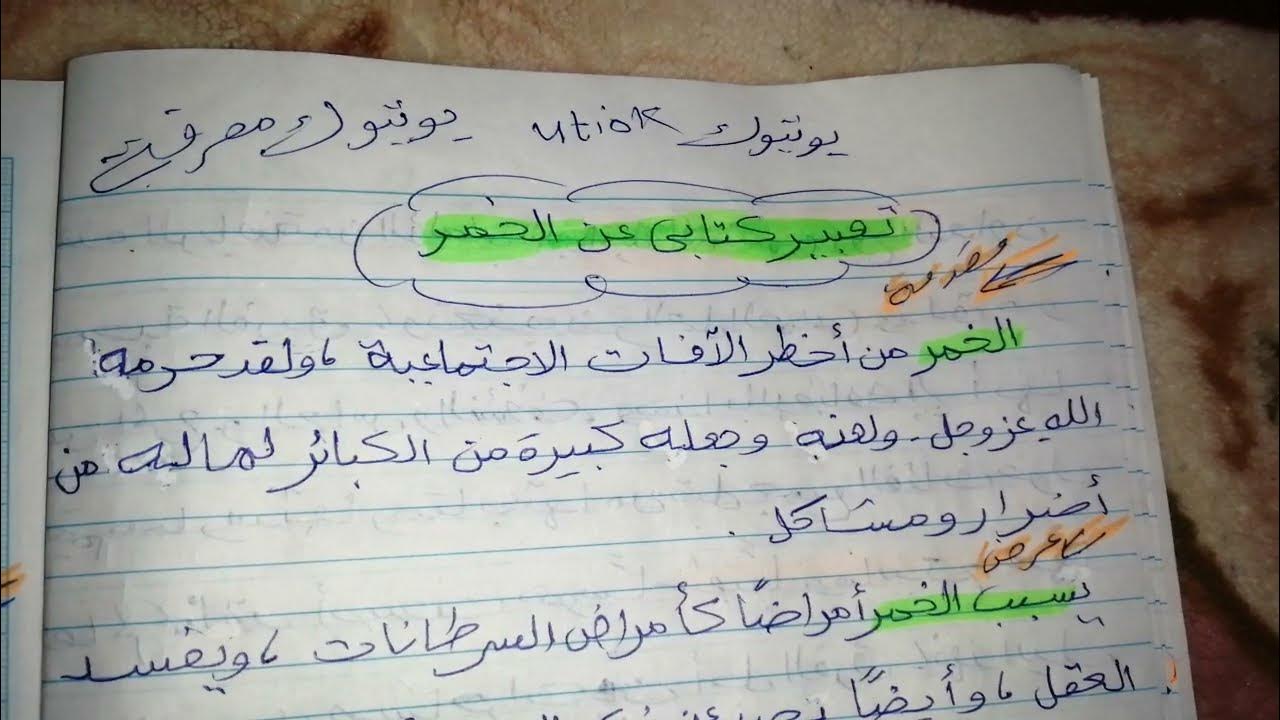 يوتيوك utiok يوتيوك معرفة
تعبير كتابي عن الخمر
مقدمة
الخمر من أخطر الآفات الاجتماعية ، ولقد حرمه
الله عز وجل - ولعنه وجعله كبيرة من الكبائر لما له من
أضرار ومشاكل .
عرض
يسبب الخمر أمراضًا كأمراض السرطانات ، ويفسد
العقل ، وأيضًا